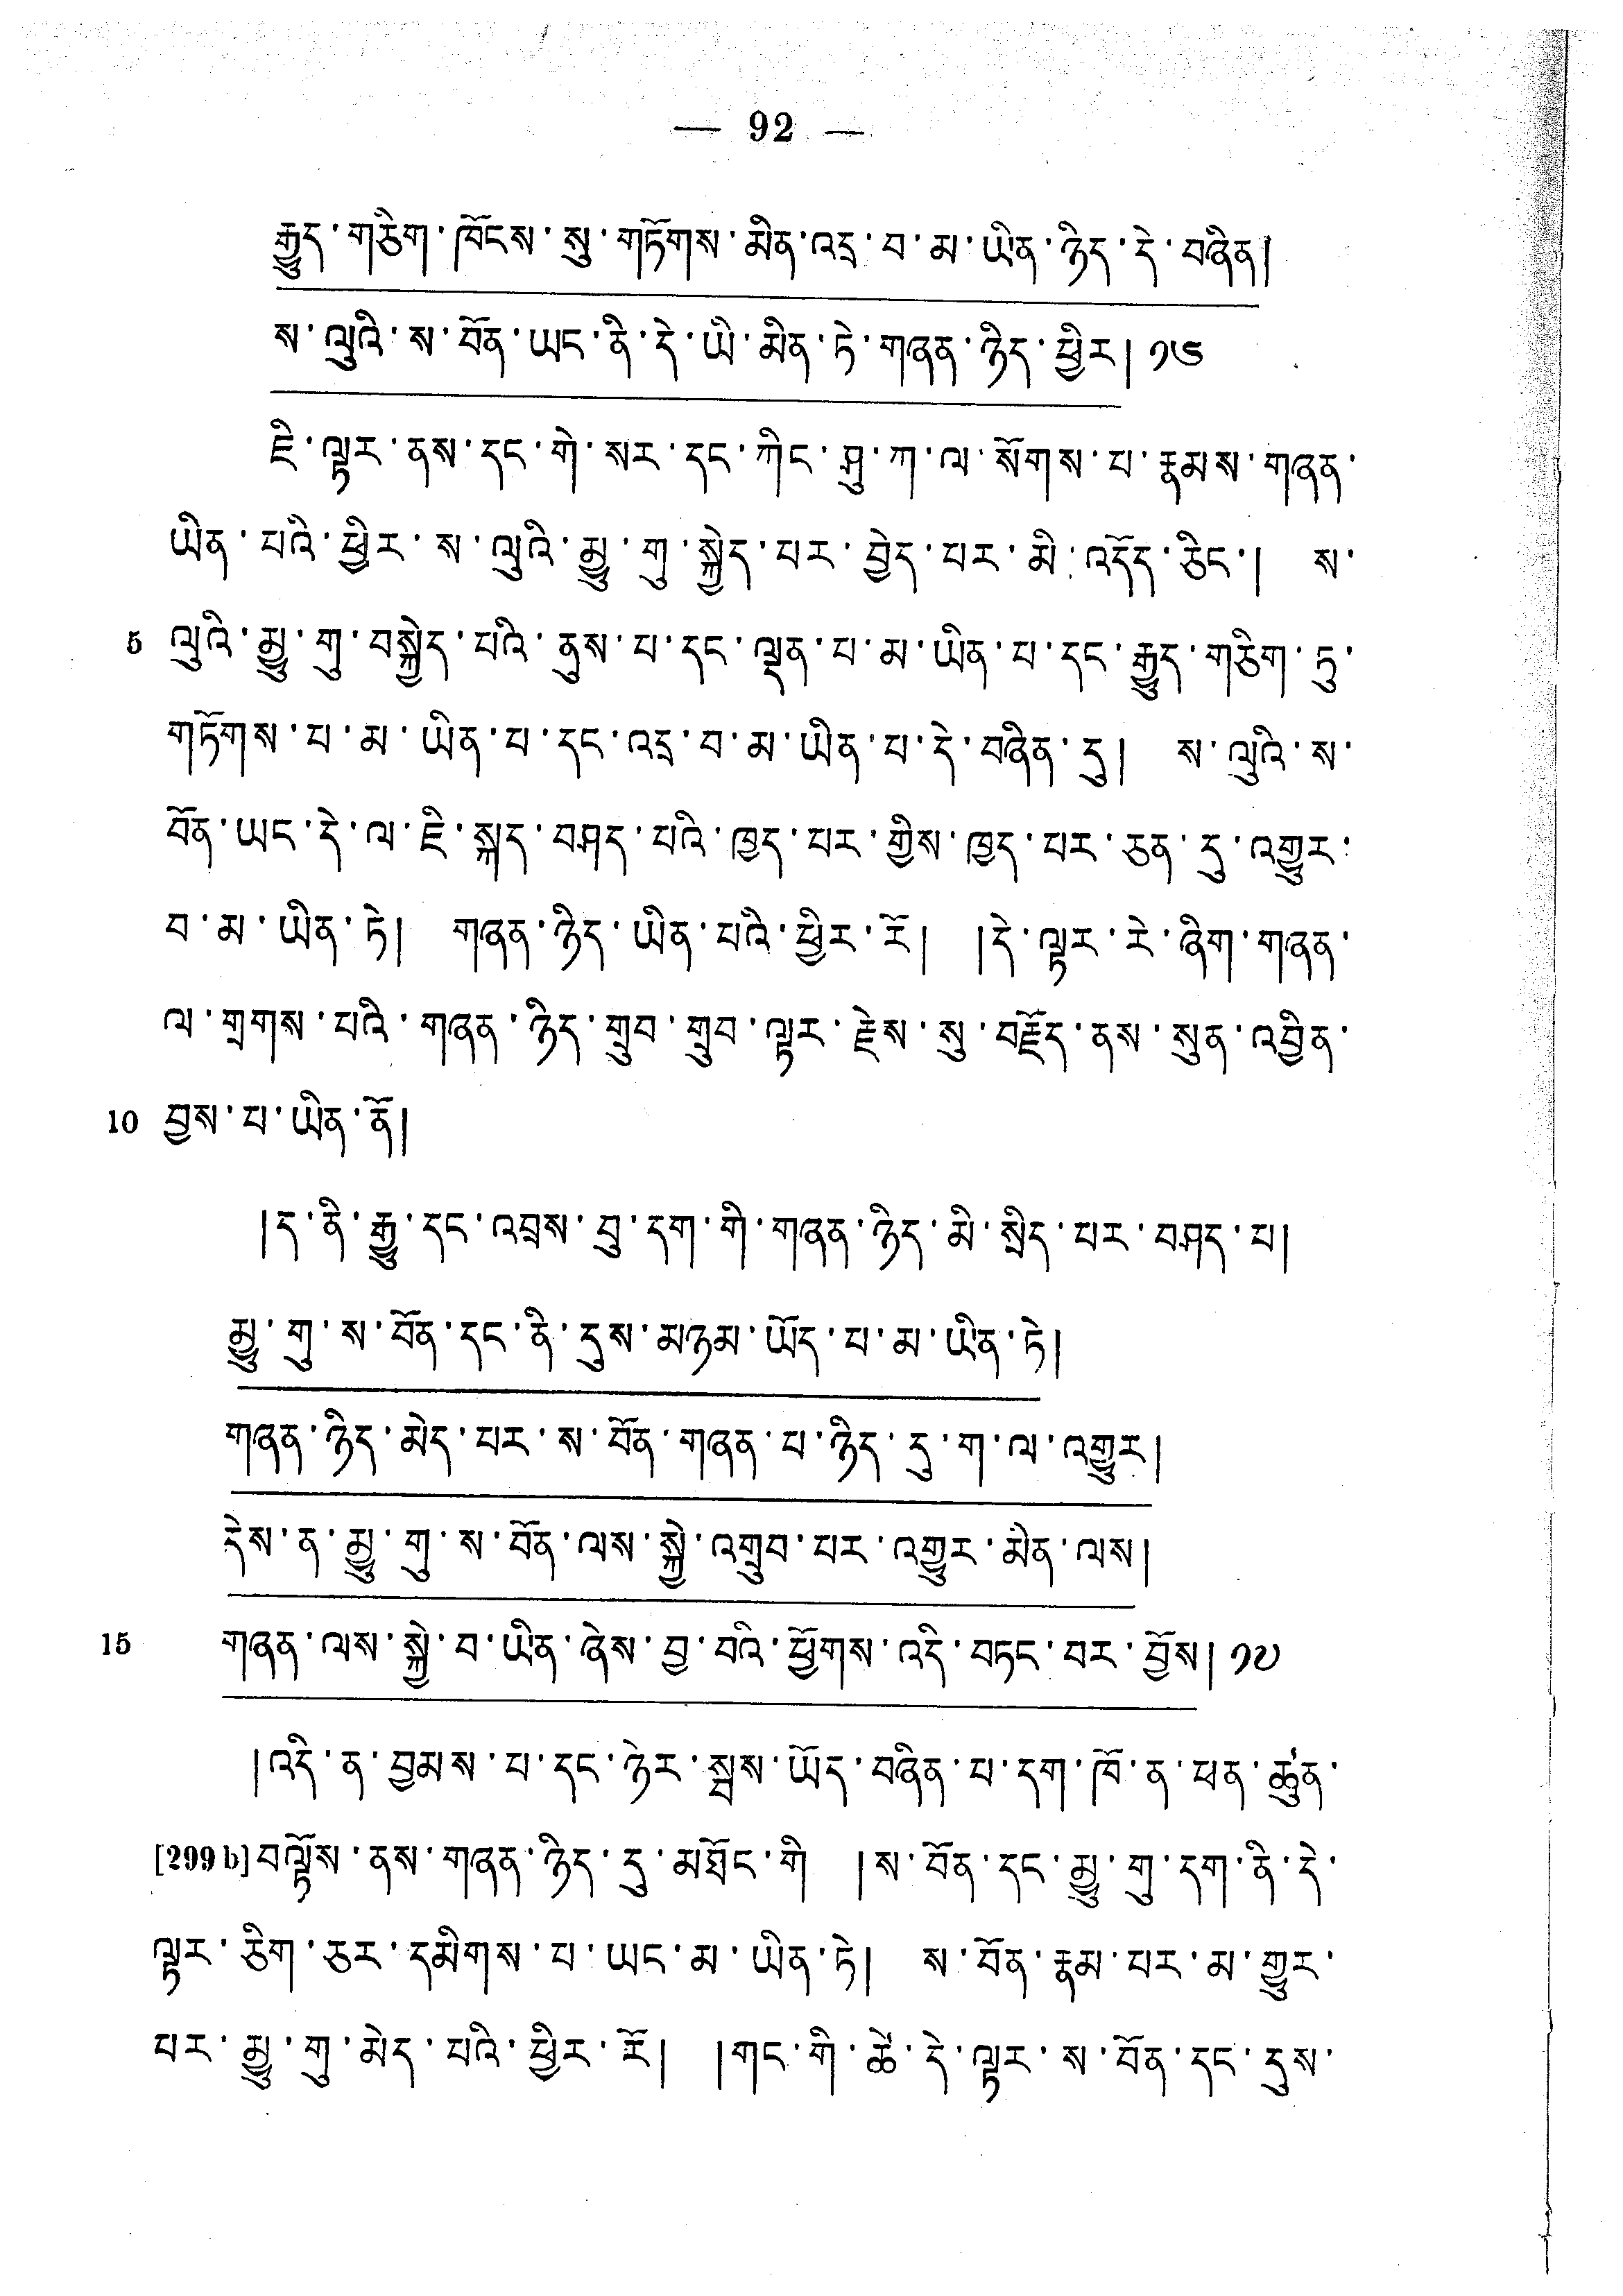 — 92 —
རྒྱུད་གཅིག་ཁོངས་སུ་གཏོགས་མིན་འདྲ་བ་མ་ཡིན་ཉིད་དེ་བཞིན།
ས་ལུའི་ས་བོན་ཡང་ནི་དེ་ཡི་མིན་ཏེ་གཞན་ཉིད་ཕྱིར། ༡༦
ཇི་ལྟར་ནས་དང་གེ་སར་དང་ཀིང་ཤུ་ཀ་ལ་སོགས་པ་རྣམས་གཞན་
ཡིན་པའི་ཕྱིར་ས་ལུའི་མྱུ་གུ་སྐྱེད་པར་བྱེད་པར་མི་འདོད་ཅིང་། ས་
5 ལུའི་མྱུ་གུ་བསྐྱེད་པའི་ནུས་པ་དང་ལྡན་པ་མ་ཡིན་པ་དང་རྒྱུད་གཅིག་ཏུ་
གཏོགས་པ་མ་ཡིན་པ་དང་འདྲ་བ་མ་ཡིན་པ་དེ་བཞིན་དུ། ས་ལུའི་ས་
བོན་ཡང་དེ་ལ་ཇི་སྐད་བཤད་པའི་ཁྱད་པར་གྱིས་ཁྱད་པར་ཅན་དུ་འགྱུར་
བ་མ་ཡིན་ཏེ། གཞན་ཉིད་ཡིན་པའི་ཕྱིར་རོ། །དེ་ལྟར་རེ་ཞིག་གཞན་
ལ་གྲགས་པའི་གཞན་ཉིད་གྲུབ་གྲུབ་ལྟར་རྗེས་སུ་བརྗོད་ནས་སུན་འབྱིན་
10 བྱས་པ་ཡིན་ནོ།
།ད་ནི་རྒྱུ་དང་འབྲས་བུ་དག་གི་གཞན་ཉིད་མི་སྲིད་པར་བཤད་པ།
མྱུ་གུ་ས་བོན་དང་ནི་དུས་མཉམ་ཡོད་པ་མ་ཡིན་ཏེ།
གཞན་ཉིད་མེད་པར་ས་བོན་གཞན་པ་ཉིད་དུ་ག་ལ་འགྱུར།
དེས་ན་མྱུ་གུ་ས་བོན་ལས་སྐྱེ་འགྲུབ་པར་འགྱུར་མིན་ལས།
15 གཞན་ལས་སྐྱེ་བ་ཡིན་ཞེས་བྱ་བའི་ཕྱོགས་འདི་བཏང་བར་བྱོས། ༡༧
།འདི་ན་བྱམས་པ་དང་ཉེར་སྦས་ཡོད་བཞིན་པ་དག་ཁོ་ན་ཕན་ཚུན་
[299 b] བལྟོས་ནས་གཞན་ཉིད་དུ་མཐོང་གི །ས་བོན་དང་མྱུ་གུ་དག་ནི་དེ་
ལྟར་ཅིག་ཅར་དམིགས་པ་ཡང་མ་ཡིན་ཏེ། ས་བོན་རྣམ་པར་མ་གྱུར་
པར་མྱུ་གུ་མེད་པའི་ཕྱིར་རོ། །གང་གི་ཚེ་དེ་ལྟར་ས་བོན་དང་དུས་